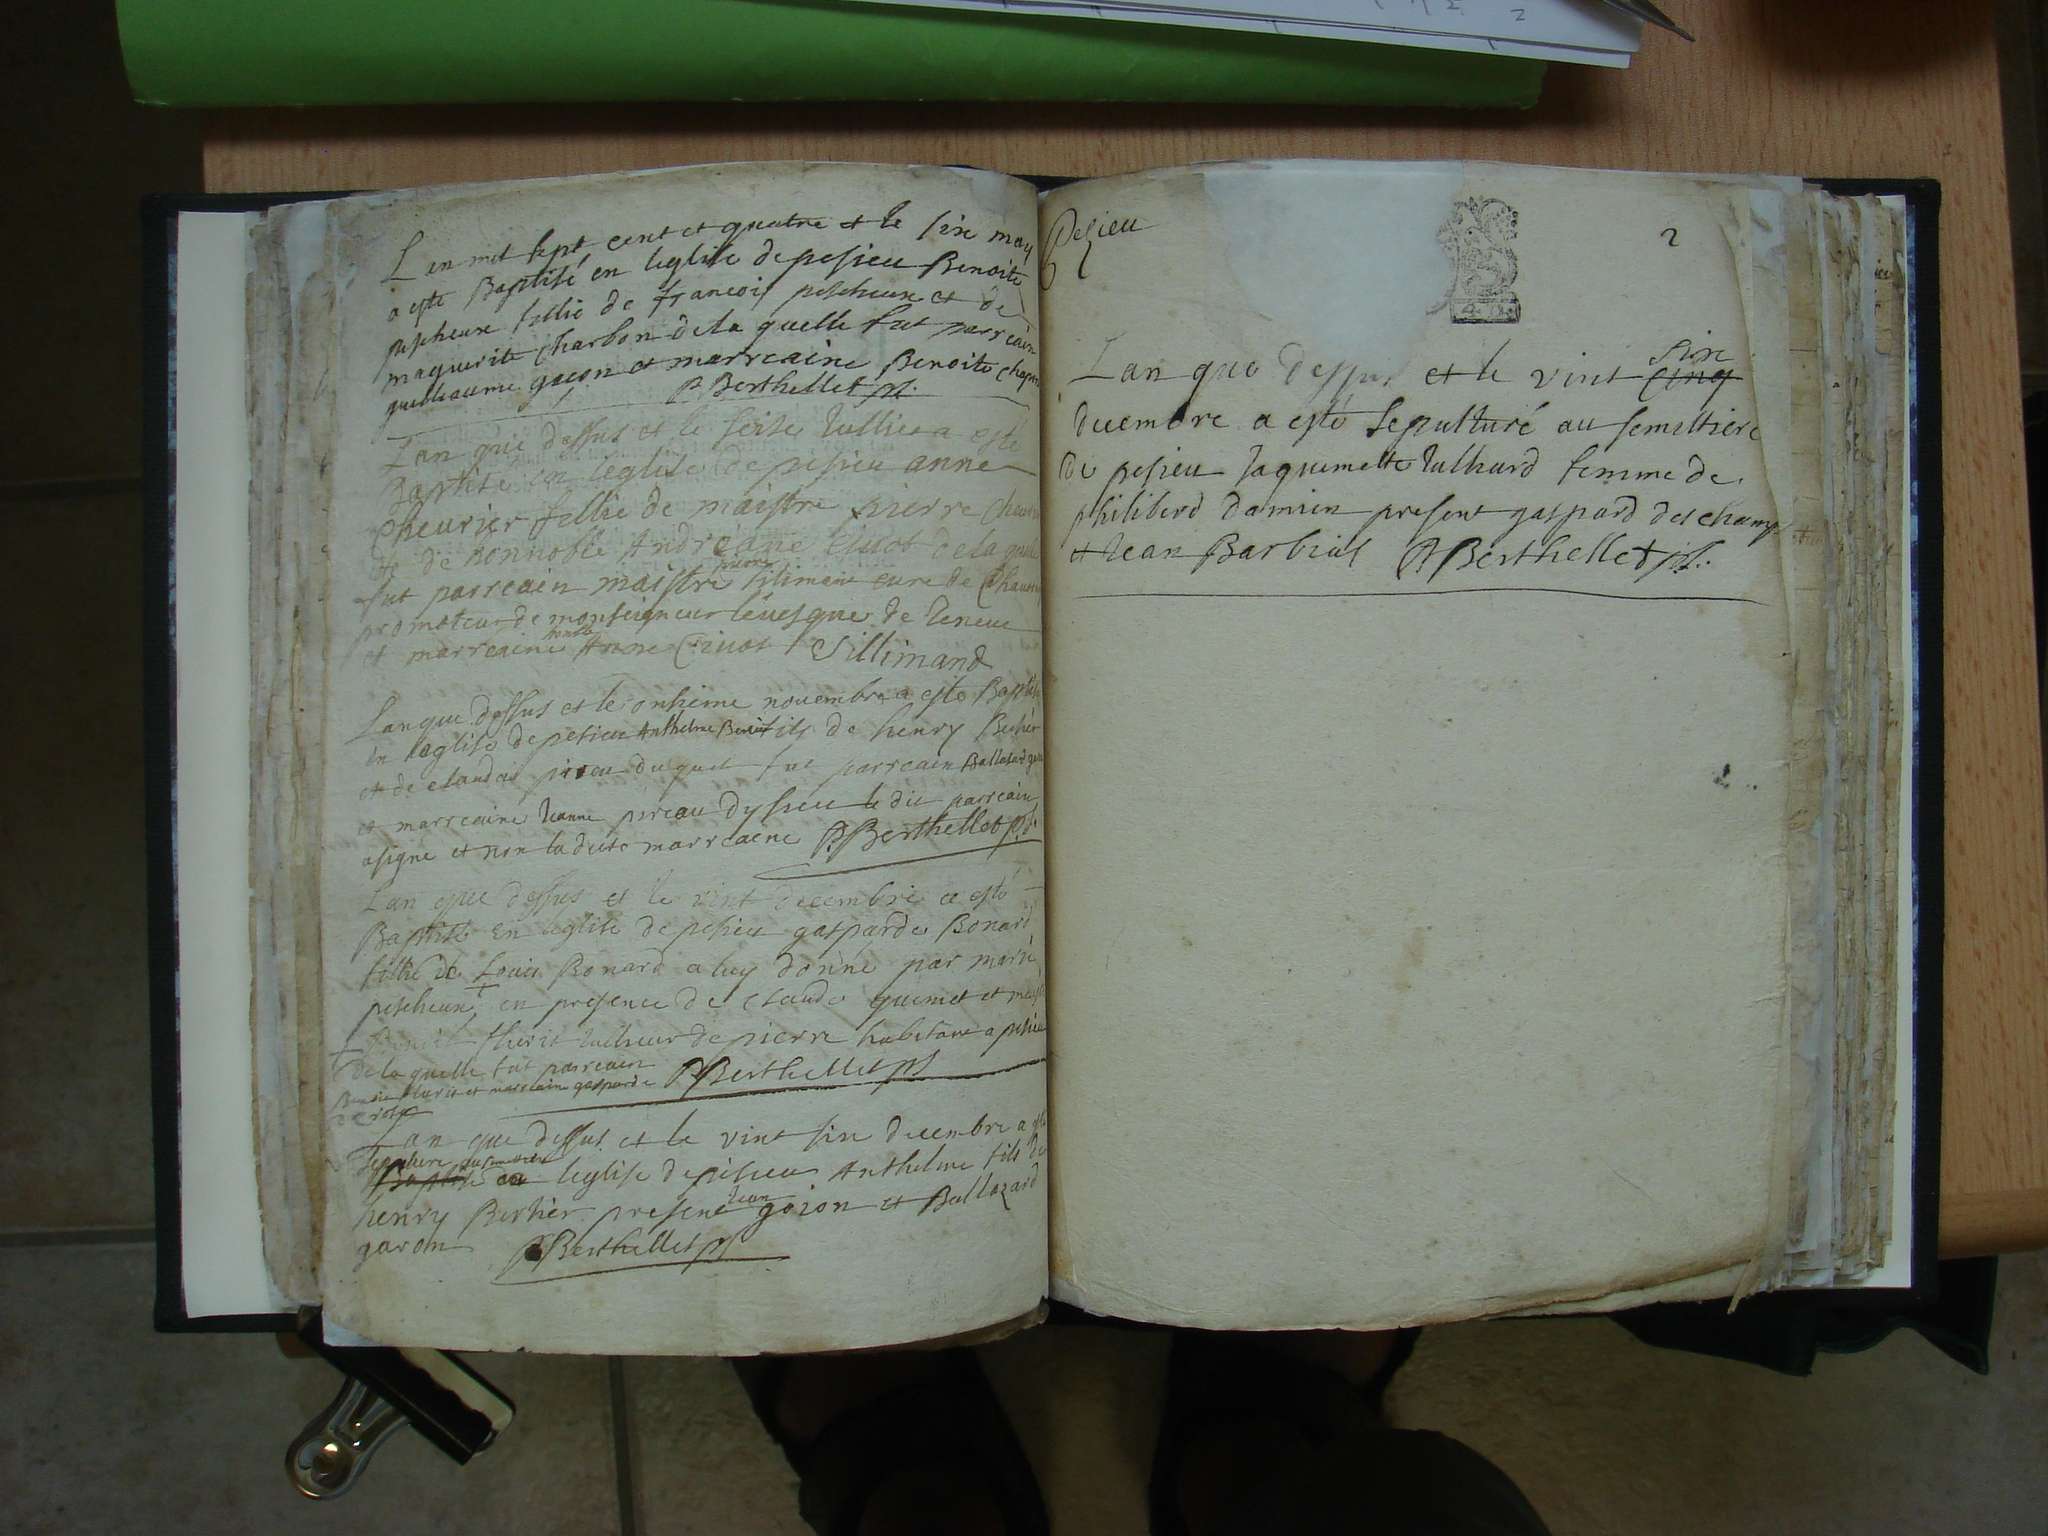 L en mil sept cent et quatre et le six may
a este Baptisé en leglise de pesieu Benoite
pescheure fillie de francois pescheure et de
maguerite Charbon de la quelle fut parreain
guilleaume goion et marreaine Benoite
P Berthellet pt.
Lan que dessus et le seise Iulliet a esté
Baptisé en leglise de pesieu anne
Cheurier fillie de maistre pierre
et de honnoble Andréane Ciuot de la quelle
fut parreain maistre pierre silimant cure de
promoteur de monseigneur leuesque de Geneue
et marreaine honble Anne Ciuot Sillimand
Lan que dessus et le onsieme nouembre a esté Baptisé
en leglise de pesieu Anthelme Benoit fils de henry Berhier
et de claudai pireau du quel fut parreain Baltasard
et marreaine Ieanne pireau dyssieu le dit parreain
asigne et non ladite marreaene P Berthellet pt.
Lan que dessus et le vint decembre a esté
Baptisé en leglise de pesieu gasparde Bonard
fillie de Louis Bonard a luy donne par marie
pescheure en presence de claude guemet et
+ Benoit fleurit Iullieur de pierre habitant a pesieu
de la quelle fut parreain
Benoit fleurit et marreaine gasparde P Berthellet pt
Lan que dessus et le vint six decembre a esté
sepulture
Baptisé leglise de pesieu Anthelme fils de
henry Berhier present Iean goion et Ballazard
garon P Berthellet pt
Pesieu
2
Lan que dessus et le vint cinq six
decembre a esté sepulturé au semiltiere
de pesieu Iaquemette Iulliard femme de
philiberd damien present gaspard des champ
et Iean Barbial P Berthellet pt.